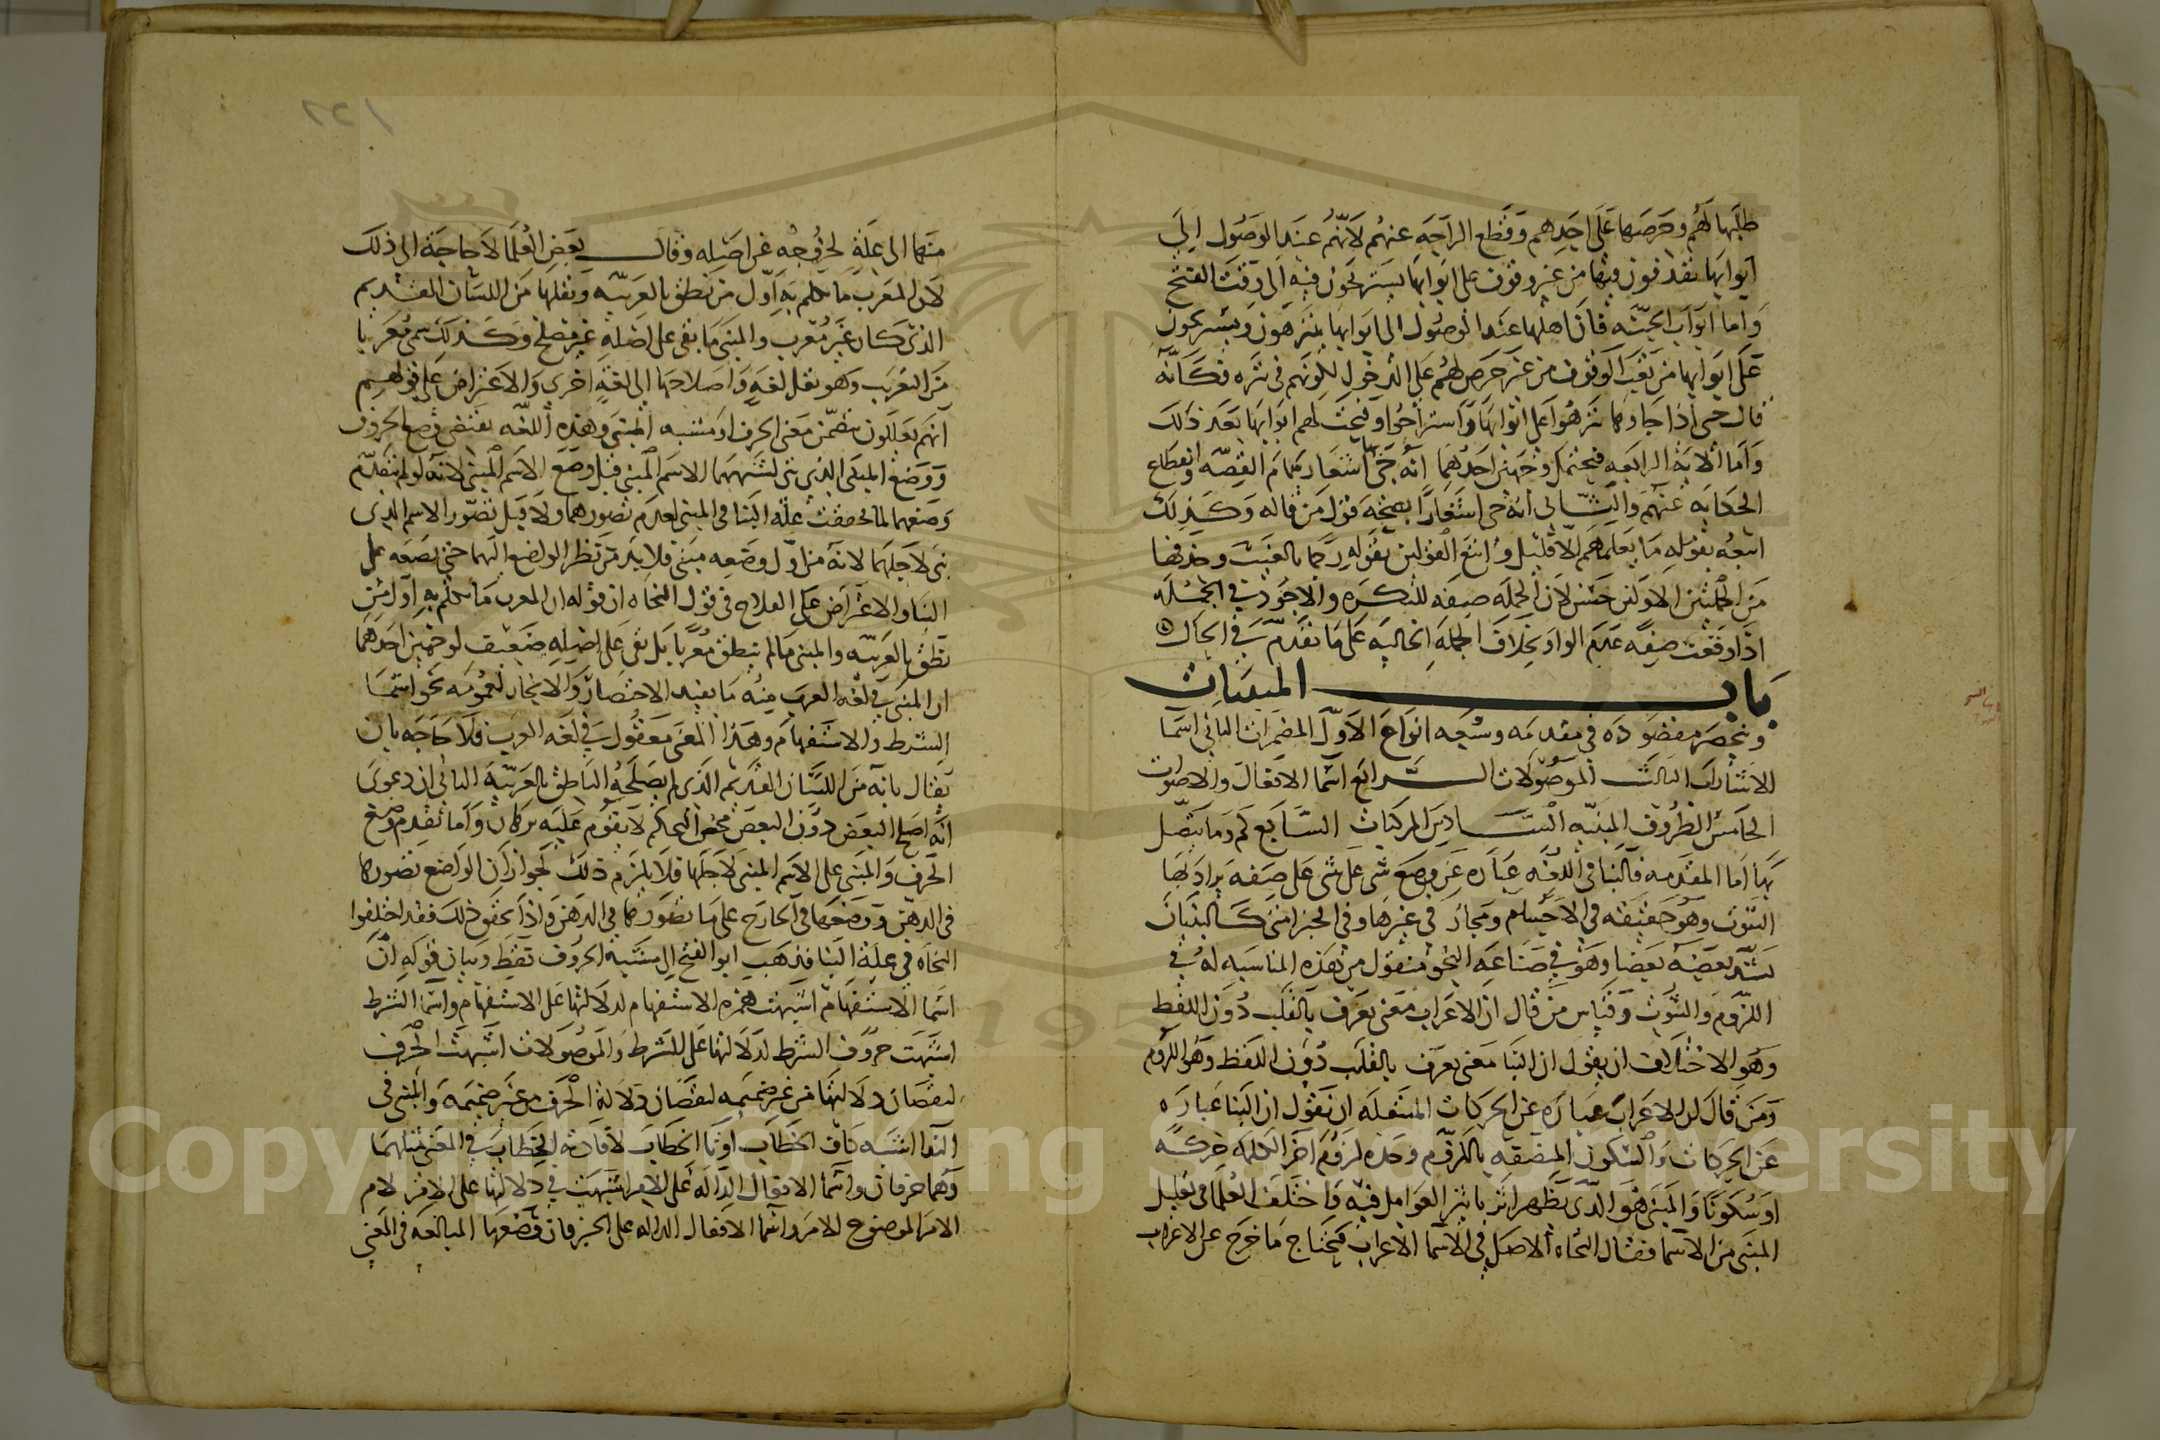 طلبها لهم وحرصها على اخذهم وقطع الراحة عنهم لانهم عند الوصول الى
ابوابها يقذفون فيها من غير وقوف على ابوابها يستريحون فيه الى وقت الفتح
واما ابواب الجنة فان اهلها عند الوصول الى ابوابها يتنزهون ويستريحون
على ابوابها من تعب الوقوف من غير حرص لهم على الدخول لكونهم في نزه فكانه
قال حتى اذا جاوها تنزهوا على ابوابها واستراحوا وفتحت لهم ابوابها بعد ذلك
واما الاية الرابعة فيحتمل وجهين احدهما انه جي اشعار بتمام القصة وانقطاع
الحكاية عنهم والثاني انه جي اشعارا بصحة قول من قاله وكذلك
اتبعه بقوله ما يعلمهم الا قليل واتبع القولين بقوله رجما بالغيب وحذفها
من الجملتين الاولتين حسن لان الجملة صفة للنكرة والاجود في الجملة
اذا وقعت صفة عدم الواو بخلاف الجملة الحالية على ما تقدم في الحال
باب المبنيات
وينحصر مقصوده في مقدمه وسبعه انواع الاول المضمرات الثاني اسما
الاشارات الثالث الموصولات الرابع اسما الافعال والاصوات
الخامس الظروف المبنيه السادس المركبات السابع كم وما يتصل
بها اما المقدمه فالبنا في اللغه عباره عن وضع شي على شي على صفه يراد بها
الثبوت وهو حقيقه في الاجسام ومجاز في غيرها وفي الخبر المومن كالبنيان
يشد بعضه بعضا وهو في صناعه النحو منقول من هذه المناسبه له في
اللزوم والثبوت وقياس من قال ان الاعراب معنى يعرف بالقلب دون اللفظ
وهو الاختلاف ان يقول ان البنا معنى يعرف بالقلب دون اللفظ وهو اللزوم
ومن قال ان الاعراب عباره عن الحركات المنتقله ان يقول ان البنا عباره
عن الحركات والسكون المتصفه باللزوم وحده لزوم اخر الكلمه حركه
او سكونا والمبنى هو الذي يظهر اثر تاثير العوامل فيه واختلف العلما في تعليل
المبنى من الاسما فقال النحاه الاصل في الاسما الاعراب فيحتاج ما خرج عن الاعراب
منها الى علة لخروجه عن اصله وقال بعض العلما لا حاجة الى ذلك
لان المعرب ما تكلم به اول من نطق بالعربيه ونقلها من اللسان القديم
الذي كان غير معرب والمبنى ما بقى على اصله غير مصلح وكذلك سمى معربا
من التعريب وهو نقل لغه واصلاحها الى لغة اخرى والاعتراض على قولهم
انهم يعللون بتضمن معنى الحرف او مشبه المبني وهذه اللغه يقتضي وضع الحروف
ووضع المبنى الذي بنى لشبههما الاسم المبنى قبل وضع الاسم المبنى لانه لو لم يتقدم
وضعهما لما تحققت علة البنا في المبنى لعدم تصورهما ولا قبل تصور الاسم الذي
بنى لاجلهما لانه من اول وضعه مبنى فلا بد من نظر الواضع اليهما حتى يضعه على
البنا والاعتراض على القلاح في قول النحاه ان قوله ان المعرب ما تكلم به اول من
نطق بالعربيه والمبنى ما لم ينطق معربا بل بقى على اصله ضعيف لوجهين احدهما
ان المبنى في لغه العرب منه ما يفيد الاختصار والايجاز لعمومه نحو اسما
الشرط والاستفهام وهذا المعنى معقول في لغه العرب فلا حاجه بان
يقال بانه من اللسان القديم الذي لم يصلحه الناطق بالعربيه الثاني ان دعوى
انه اصلح البعض دون البعض محض التحكم لا يقوم عليه برهان واما تقدم وضع
الحرف والمبنى على الاسم المبنى لاجلها فلا يلزم ذلك لجواز ان الواضع تصورها
في الذهن ووضعها في الخارج على ما تصورها في الذهن واذا تحقق ذلك فقد اختلفوا
النحاه في علة البنا فذهب ابو الفتح الى شبه الحروف فقط وبيان قوله ان
اسما الاستفهام اشبهت همزه الاستفهام لدلالتها على الاستفهام واسما الشرط
اشبهت حروف الشرط لدلالتها على الشرط والموصولات اشبهت الحرف
لنقصان دلالتها من غير ضميمه لنقصان دلالة الحرف من غير ضميمه والمبنى في
الندا اشبه كاف الخطاب او تا الخطاب لافادته الخطاب في المعنى مثلهما
وهما حرفان واسما الافعال الدالة على الامر اشبهت في دلالتها على الامر لام
الامر الموضوع للامر واسما الافعال الداله على الخبر فان وضعها المبالغه في المعنى
Copyright © King Saud University